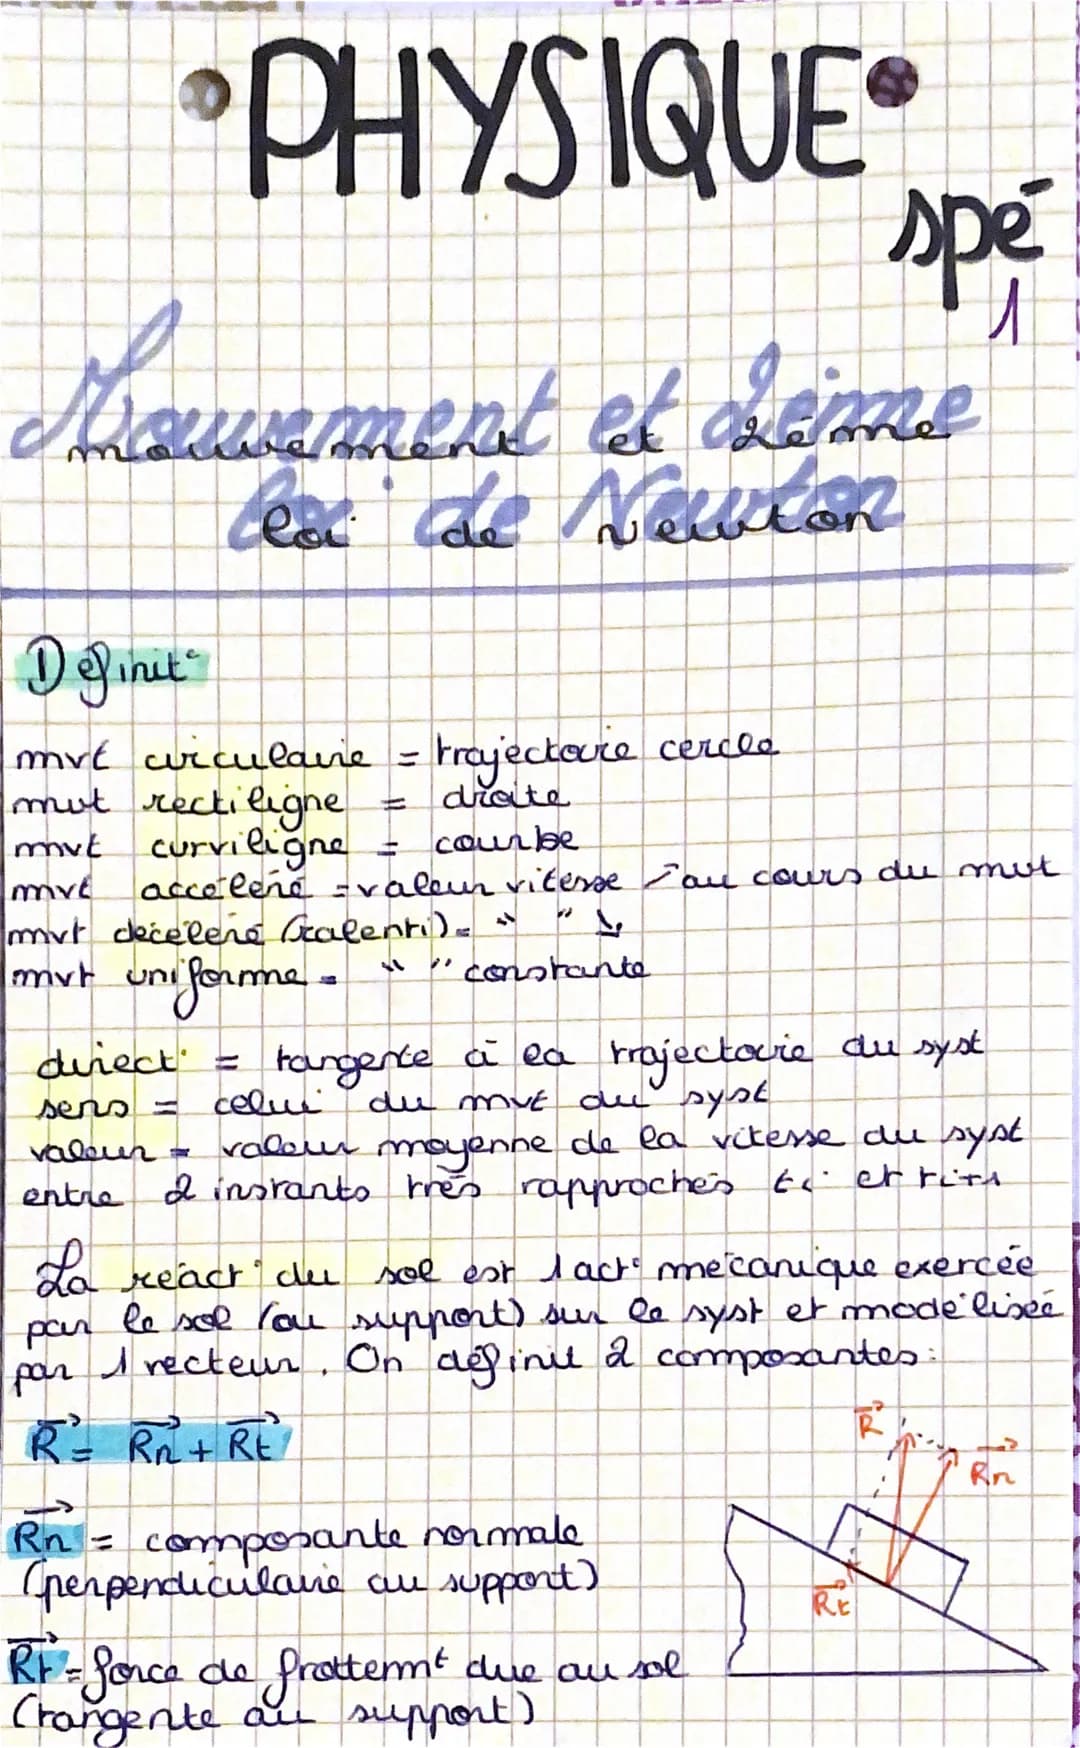 PHYSIQUE
spé
1
Mouvement et 2ème
mouvement et 2ème
loi de Newton
loi de Newton
Définit°
mvt circulaire = trajectoire cercle
mvt rectiligne = droite
mvt curviligne = courbe
mvt accéléré = valeur vitesse ↗ au cours du mvt
mvt décéléré (ralenti) = " " ↘
mvt uniforme = " " constante
direct° = tangente à la trajectoire du syst
sens = celui du mvt du syst
valeur = valeur moyenne de la vitesse du syst
entre 2 instants très rapprochés ti et ti+1
La réact° du sol est 1 act° mécanique exercée
par le sol (ou support) sur le syst et modélisée
par 1 vecteur. On définit 2 composantes:
R⃗ = Rn⃗ + Rt⃗
R⃗
Rn⃗
Rn⃗ = composante normale
(perpendiculaire au support)
Rt⃗
Rt⃗ = force de frottemt due au sol
(tangente au support)